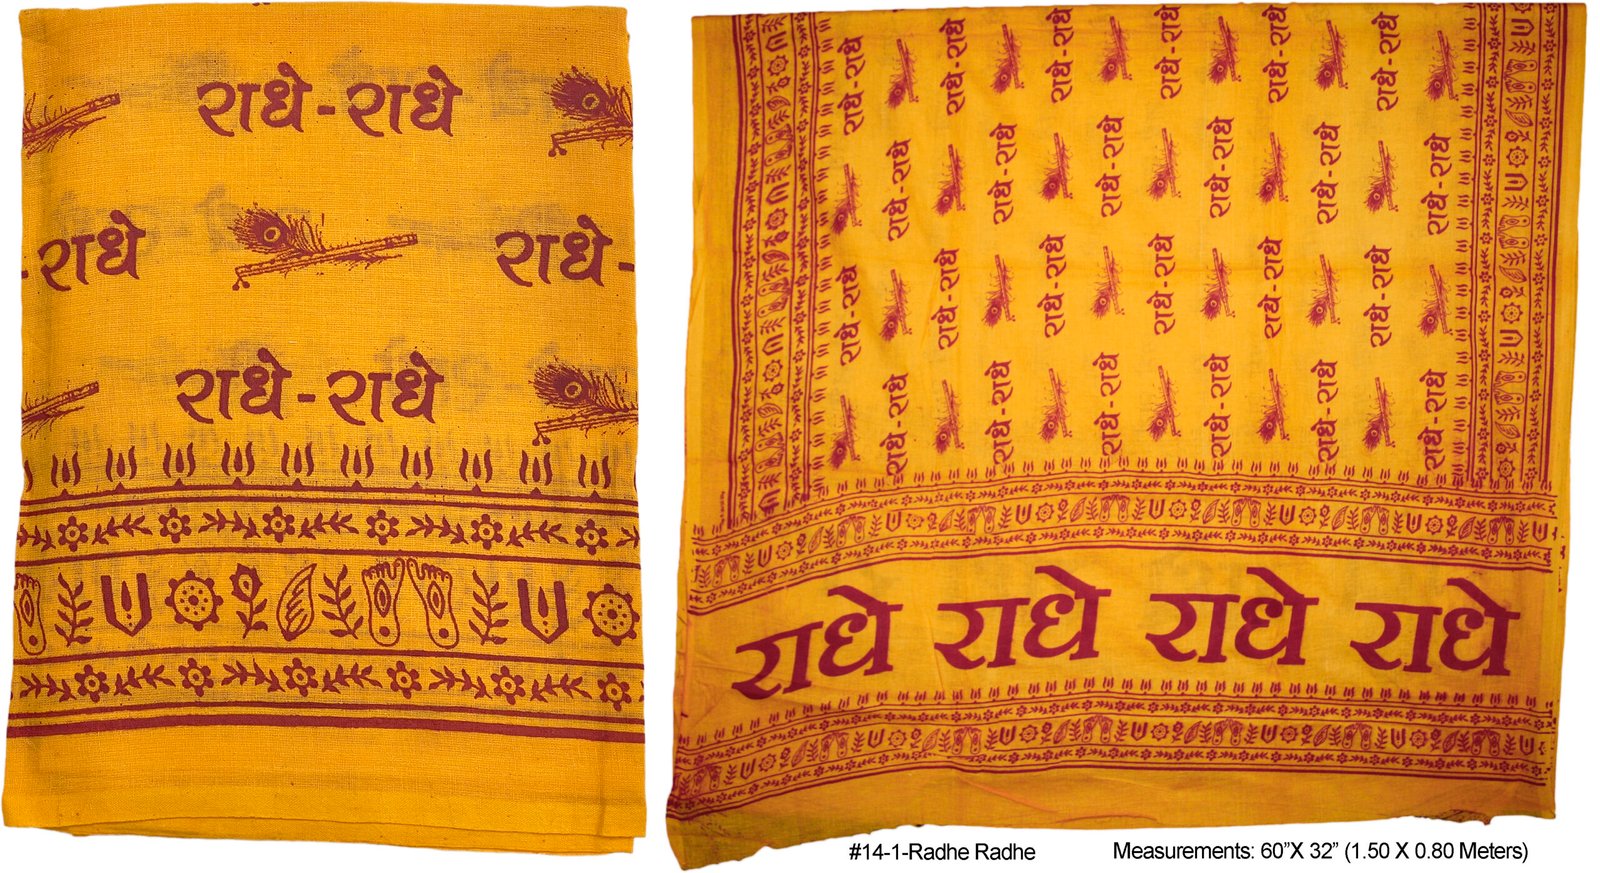 राधे-राधे
-राधे राधे-
राधे-राधे
राधे-राधे राधे-राधे राधे-राधे राधे-राधे राधे-राधे राधे-राधे
राधे-राधे राधे-राधे राधे-राधे राधे-राधे राधे-राधे राधे-राधे
राधे-राधे राधे-राधे राधे-राधे राधे-राधे राधे-राधे राधे-राधे
राधे-राधे राधे-राधे राधे-राधे राधे-राधे राधे-राधे राधे-राधे
राधे राधे राधे राधे
#14-1-Radhe Radhe
Measurements: 60”X 32” (1.50 X 0.80 Meters)